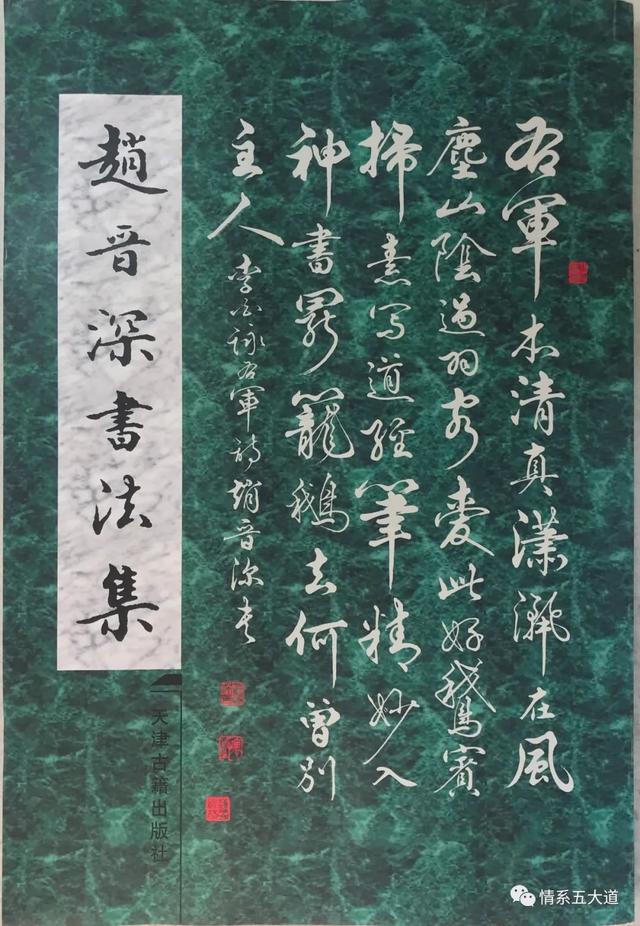 右軍本清真瀟灑在風
塵山陰過羽客愛此好鵞賓
掃素寫道經筆精妙入
神書罷籠鵝去何曾別
主人
李白詠右軍詩趙晋深書
趙晋深書法集
天津古籍出版社
情系五大道